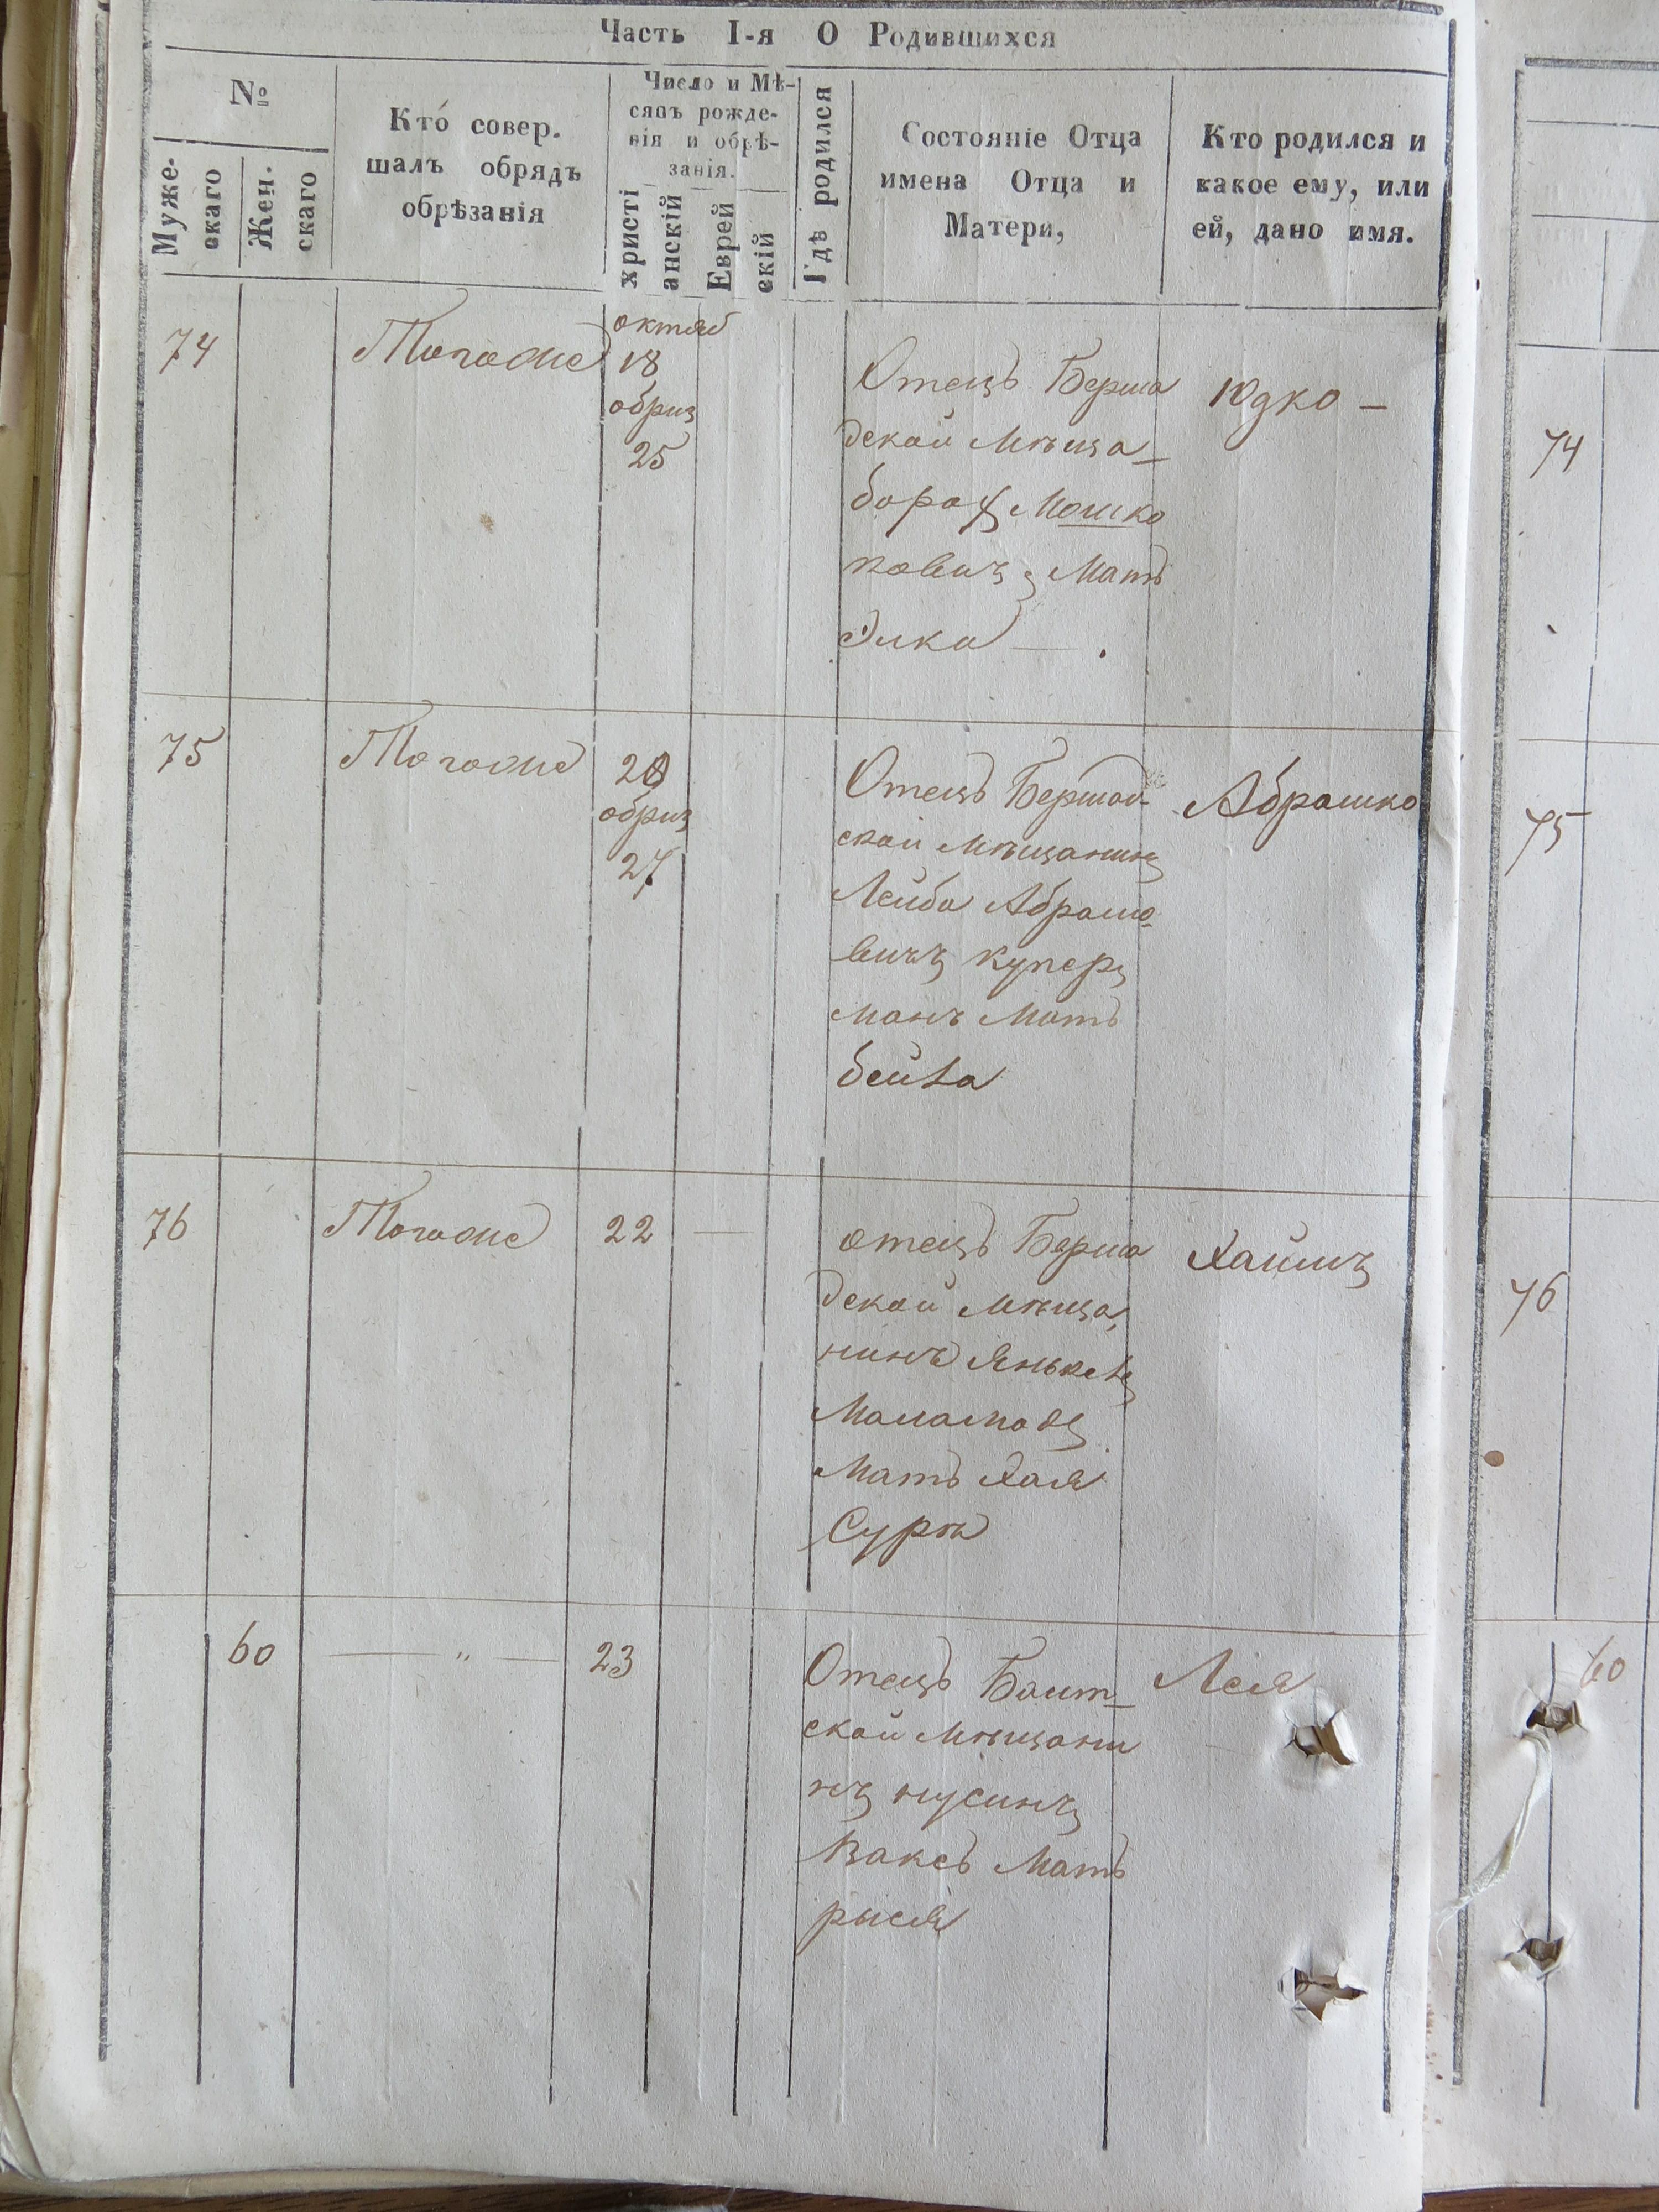 Часть I-я О Родившихся
№
Муже-
скаго
Жен.
скаго
Кто совер.
шалъ обрядъ
обрѣзанія
Число и Мѣ-
сяцъ рожде-
нія и обрѣ-
занія.
христі
анскій
Еврей
скій
Гдѣ родился
Состояніе Отца
имена Отца и
Матери,
Кто родился и
какое ему, или
ей, дано имя.
74
октяб
18
обриз
25
Отецъ Берша
декой мѣща
Мошко
ковичъ Мать
Элка
Юдко
74
75
20
обриз
27
Отецъ Бершад-
ской мѣщанинъ
Лейба Абрамо-
вичъ купер
манъ Мать
бейла
Абрашко
75
76
22
отецъ Берша
декой мѣща,
нинъ Янькель
Маламодъ
Мать Хая
Сура
Хаимъ
76
60
23
Отецъ Балт-
ской мѣщани
нъ нусинъ
Ваксъ Мать
рыся
Лея
60